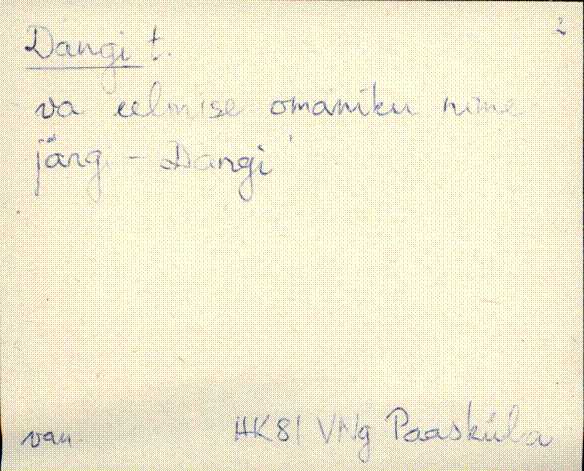 Dangi t.
va eelmise omaniku nime
järg. - Dangi
van. HK81 VNg Paasküla